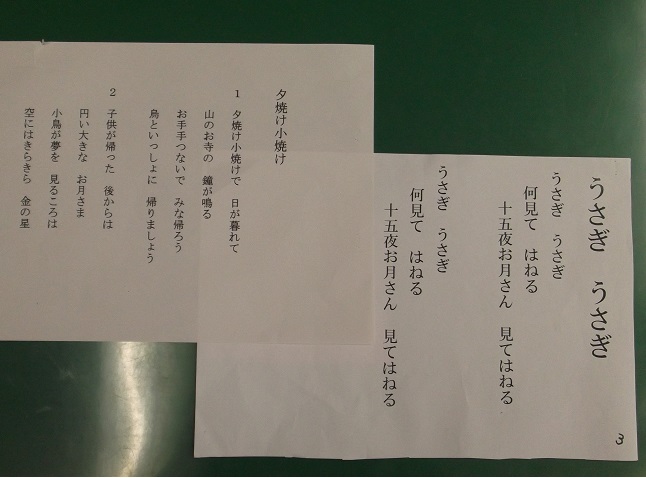 うさぎ うさぎ
うさぎ うさぎ
何見て はねる
十五夜お月さん 見てはねる
うさぎ うさぎ
何見て はねる
十五夜お月さん 見てはねる
3
夕焼け小焼け
1 夕焼け小焼けで 日が暮れて
山のお寺の 鐘が鳴る
お手手つないで みな帰ろう
烏といっしょに 帰りましょう
2 子供が帰った 後からは
円い大きな お月さま
小鳥が夢を 見るころは
空にはきらきら 金の星